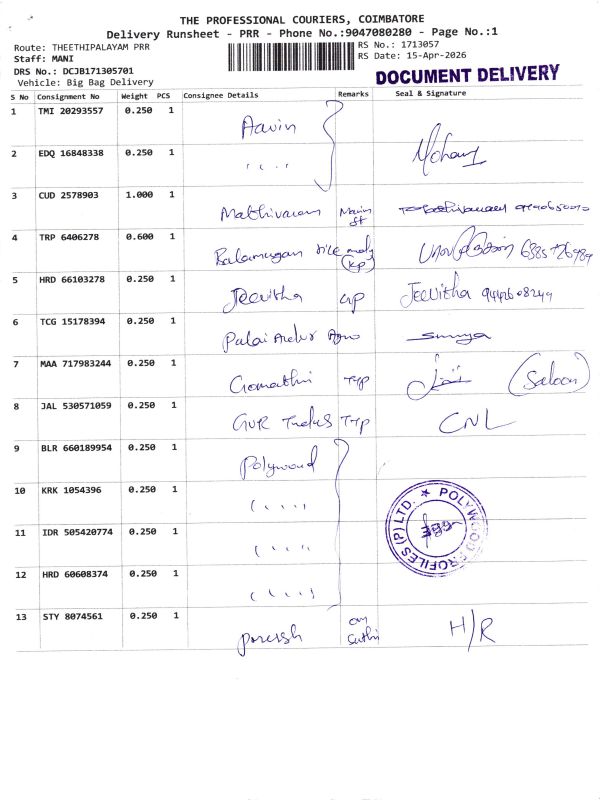 THE PROFESSIONAL COURIERS, COIMBATORE
Delivery Runsheet - PRR - Phone No.:9047080280 - Page No.:1
Route: THEETHIPALAYAM PRR
RS No.: 1713057
Staff: MANI
RS Date: 15-Apr-2026
DRS No.: DCJB171305701
DOCUMENT DELIVERY
Vehicle: Big Bag Delivery
S No Consignment No Weight PCS Consignee Details Remarks Seal & Signature
1 TMI 20293557 0.250 1 Aavin
2 EDQ 16848338 0.250 1 " " Mohan
3 CUD 2578903 1.000 1 Mathivanan Main st
4 TRP 6406278 0.600 1 Balamugan rice (KP)
5 HRD 66103278 0.250 1 Jeevitha Jeevitha
6 TCG 15178394 0.250 1 Surya
7 MAA 717983244 0.250 1 Gomathi TYP (Saloon)
8 JAL 530571059 0.250 1 GVR TYP CNL
9 BLR 660189954 0.250 1 Polywood
10 KRK 1054396 0.250 1 " "
11 IDR 505420774 0.250 1 " "
12 HRD 60608374 0.250 1 " "
POLYWOOD PROFILES (P) LTD.
13 STY 8074561 0.250 1 H/R